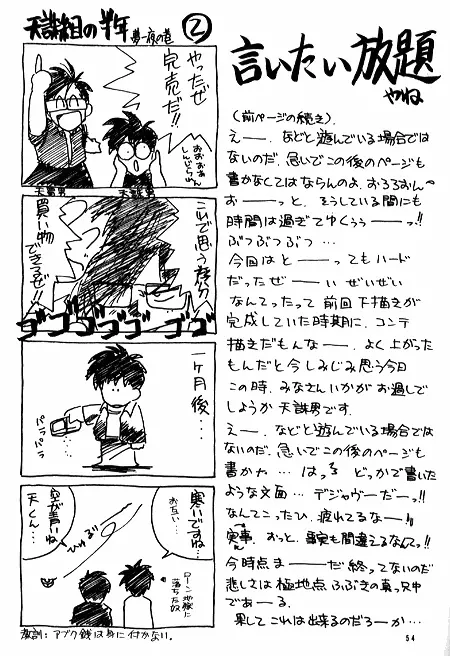 天誅組の半年
夢一夜の巻
②
やったぜ
完売だ!!
おおおお
しんじられん
天誅男
これで思う存分
買い物
できるぜ!!
ゴゴゴゴゴゴゴ
一ヶ月後…
パラパラ
寒いですね…
お互い…
空が青いね
天くん…
ひゅるる
ローン地獄に
落ちた奴
教訓:アブク銭は身に付かない。
言いたい放題
やね
(前ページの続き)、
えー――、などと遊んでいる場合では
ないのだ、急いでこの後のページも
書かなくてはならんのよ、おろろおん〜
おー――っと、そうしている間にも
時間は過ぎてゆくぅぅ――っ!!
ぶつぶつぶつ…
今回はと――ってもハード
だったぜ――ぃ ぜいぜい
なんてったって 前回下描きが
完成していた時期に、コンテ
描きだもんな――、よく上がった
もんだと今しみじみ思う今日
この時、みなさんいかがお過しで
しょうか 天誅男です。
えー――、などと遊んでいる場合では
ないのだ、急いでこの後のページも
書かね…はっ どっかで書いた
ような文面… デジャヴーだーっ!!
なんてこったひ、疲れてるなー―!!
実事、おっと、事実も間違えるなんてっ!!
今時点ま――だ終ってないのだ
悲しさは極地点ふぶきの真っ只中
であ――る。
果して これは出来るのだろーか…
54